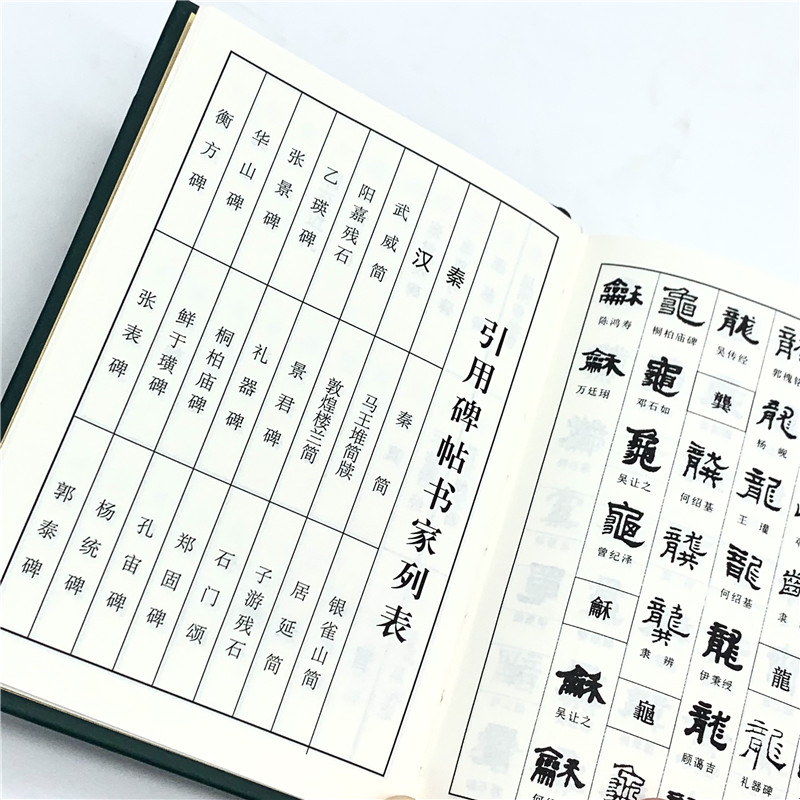 引用碑帖书家列表
秦
秦简
银雀山简
汉
马王堆简牍
居延简
武威简
敦煌楼兰简
子游残石
阳嘉残石
景君碑
石门颂
乙瑛碑
礼器碑
郑固碑
张景碑
桐柏庙碑
孔宙碑
华山碑
鲜于璜碑
杨统碑
衡方碑
张表碑
郭泰碑
龍
龍
礼器碑
龍
杨岘
龍
王瓘
龍
何绍基
龍
伊秉绶
龍
顾蔼吉
龍
吴传经
龔
龔
何绍基
龔
龔
隶辨
龜
龜
桐柏庙碑
龜
邓石如
龜
吴让之
龜
曾纪泽
龢
龢
吴让之
龢
龢
陈鸿寿
龢